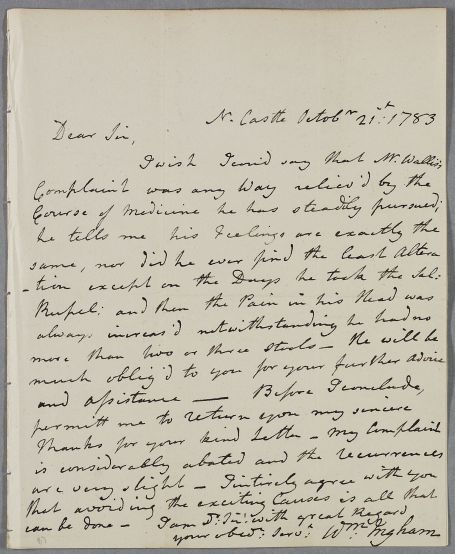 N. Castle Octobr 21st: 1783
Dear Sir,
I wish I could say that Mr. Wallis's
Complaint was any Way reliev'd by the
Course of Medicine he has steadily pursued;
he tells me his Feelings are exactly the
same, nor did he ever find the least Altera
-tion except on the Days he took the Sal:
Rupel: and then the Pain in his Head was
always increas'd notwithstanding he had no
more than two or three Stools — He will be
much oblig'd to you for your further Advice
and Assistance — Before I conclude,
permitt me to return you my sincere
Thanks for your kind Letter — My Complaint
is considerably abated and the recurrences
are very slight — I intirely agree with you
that avoiding the exciting Causes is all that
can be done — I am Dr. Sir: with great Regard
your obedt: Servt: Wm: Ingham